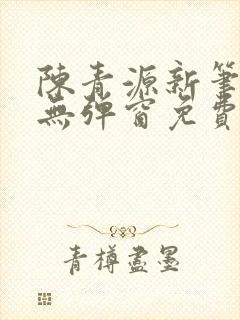 陳青源新筆
無彈窗免費
青樽盡墨